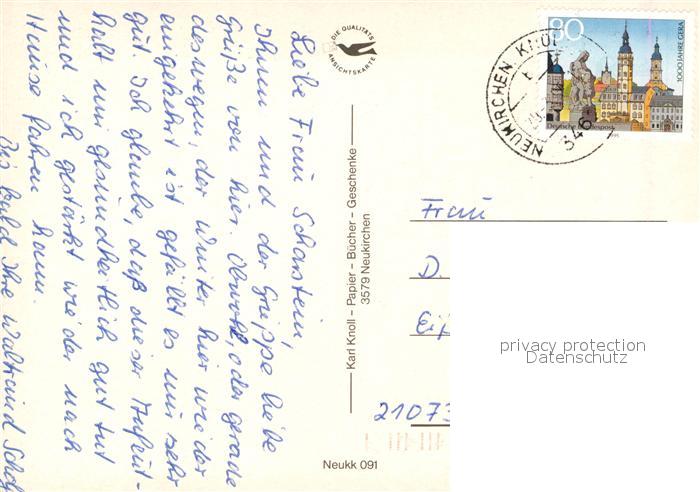 Liebe Frau Scharstein,
Ihnen und der Gruppe liebe
Grüße von hier. Obwohl, oder gerade
deswegen, der Winter hier wieder
eingekehrt ist gefällt es mir sehr
gut. Ich glaube, daß dieser Aufent-
halt mir gesundheitlich gut tut
und ich gestärkt wieder nach
Hause fahren kann.
Bis bald Ihre Waltraud
DIE QUALITÄTS
ANSICHTSKARTE
Karl Knoll – Papier – Bücher – Geschenke
3579 Neukirchen
Neukk 091
80
1000 JAHRE GERA
Deutsche Bundespost
NEUKIRCHEN KNÜL
346
Frau
D.
21073
privacy protection
Datenschutz